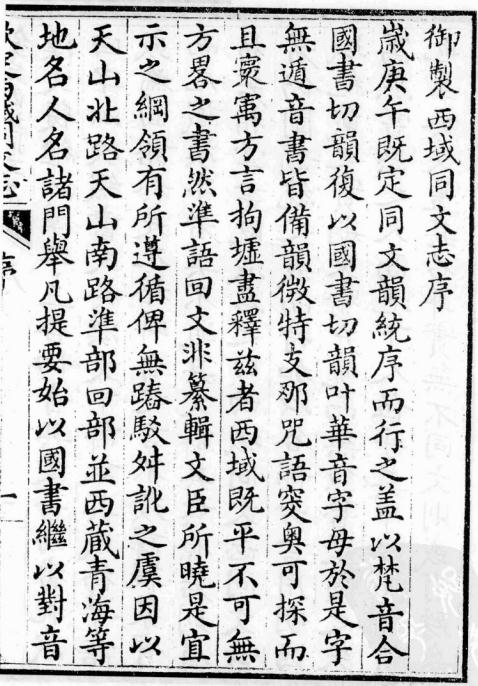 御製西域同文志序
歲庚午既定同文韻統序而行之盖以梵音合
國書切韻復以國書切韻叶華音字母於是字
無遁音書皆備韻微特支那咒語窔奥可探而
且寰㝢方言拘墟盡釋兹者西域既平不可無
方畧之書然準語回文非纂輯文臣所曉是宜
示之綱領有所遵循俾無踳駁舛訛之虞因以
天山北路天山南路準部回部並西藏青海等
地名人名諸門舉凡提要始以國書繼以對音
欽定西域同文志
序
一